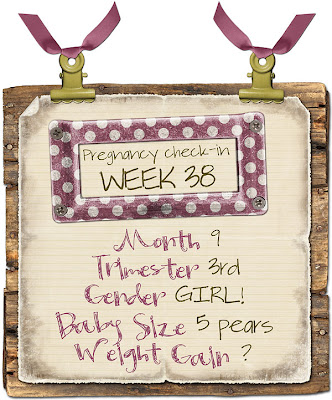 Pregnancy check-in
WEEK 38
Month 9
Trimester 3rd
Gender GIRL!
Baby Size 5 pears
Weight Gain ?